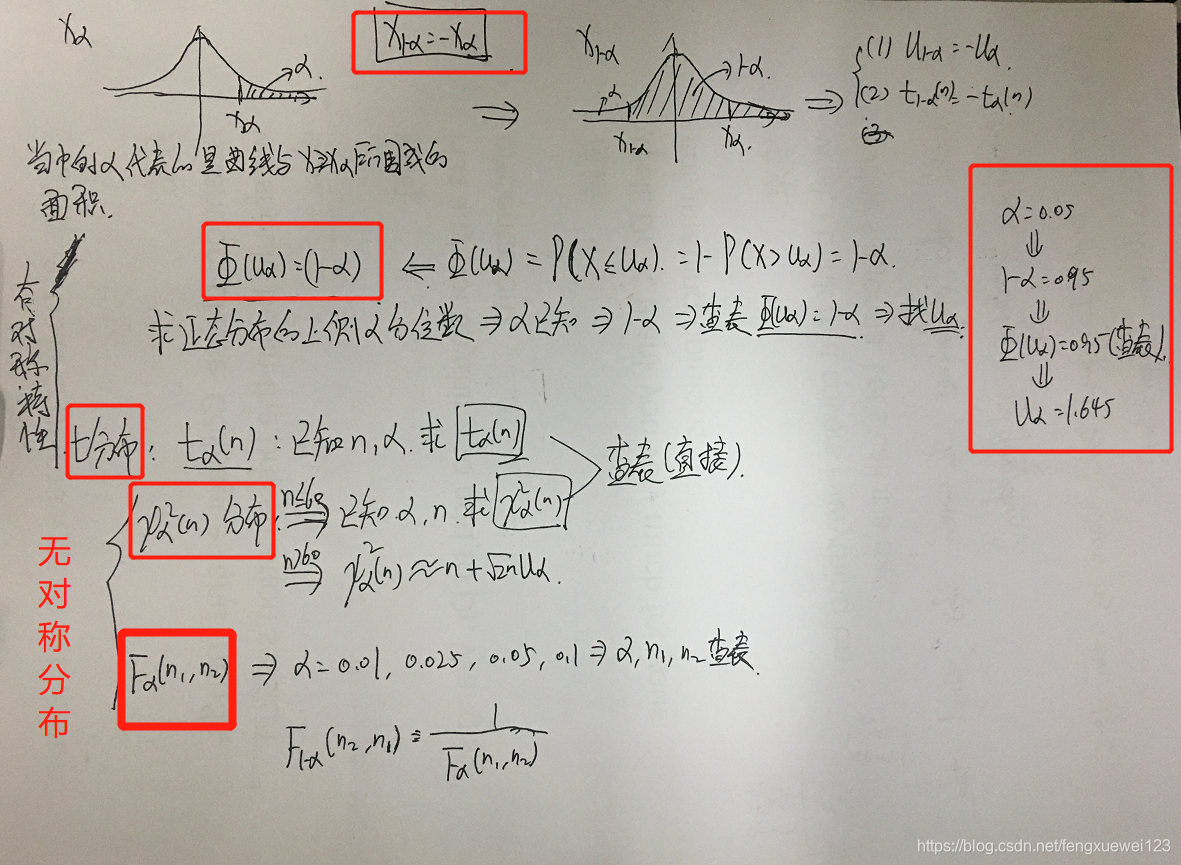 Xα
X1-α=-Xα
α.
Xα
⇒
X1-α
α
1-α.
X1-α
Xα.
⇒
(1) U1-α=-Uα.
(2) t1-α(n)=-tα(n)
当中的α代表的是曲线与X≥Xα所围成的
面积.
Φ(Uα)=(1-α) ⇐ Φ(Uα)=P(X≤Uα).=1-P(X>Uα)=1-α.
求正态分布的上侧α分位数⇒α已知⇒1-α⇒查表Φ(Uα)=1-α⇒找Uα.
α=0.05
⇓
1-α=0.95
⇓
Φ(Uα)=0.95(查表).
⇓
Uα=1.645
有对称特性
t分布: tα(n): 已知n,α.求tα(n)
χα²(n) 分布: n≤60⇒ 已知.α,n.求χα²(n)
查表(直接).
n>60⇒ χα²(n)≈n+√2nUα.
无对称分布
Fα(n1,n2) ⇒ α=0.01, 0.025, 0.05, 0.1⇒α,n1,n2查表.
F1-α(n2,n1)=1/Fα(n1,n2)
https://blog.csdn.net/fengxuewei123